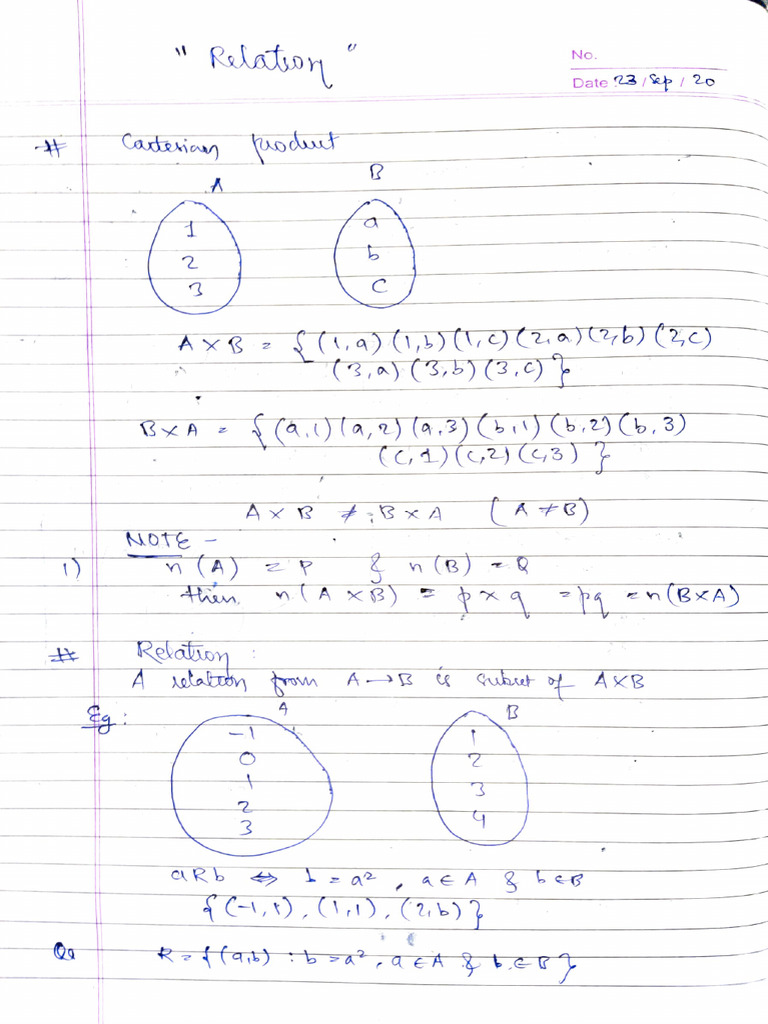 " Relation "
No.
Date 23 / Sep / 20
# Cartesian product
A B
1 a
2 b
3 c
A × B = {(1,a) (1,b) (1,c) (2,a) (2,b) (2,c)
(3,a) (3,b) (3,c)}
B×A = {(a,1) (a,2) (a,3) (b,1) (b,2) (b,3)
(c,1) (c,2) (c,3)}
A × B ≠ B × A (A ≠ B)
NOTE -
1) n(A) = P & n(B) = Q
then n(A × B) = p × q = pq = n(B×A)
# Relation :
A relation from A → B is subset of A×B
Eg : A B
-1 1
0 2
1 3
2 4
3
aRb ⇔ b = a², a ∈ A & b ∈ B
{(-1,1), (1,1), (2,b)}
R = {(a,b) : b = a², a ∈ A & b ∈ B}